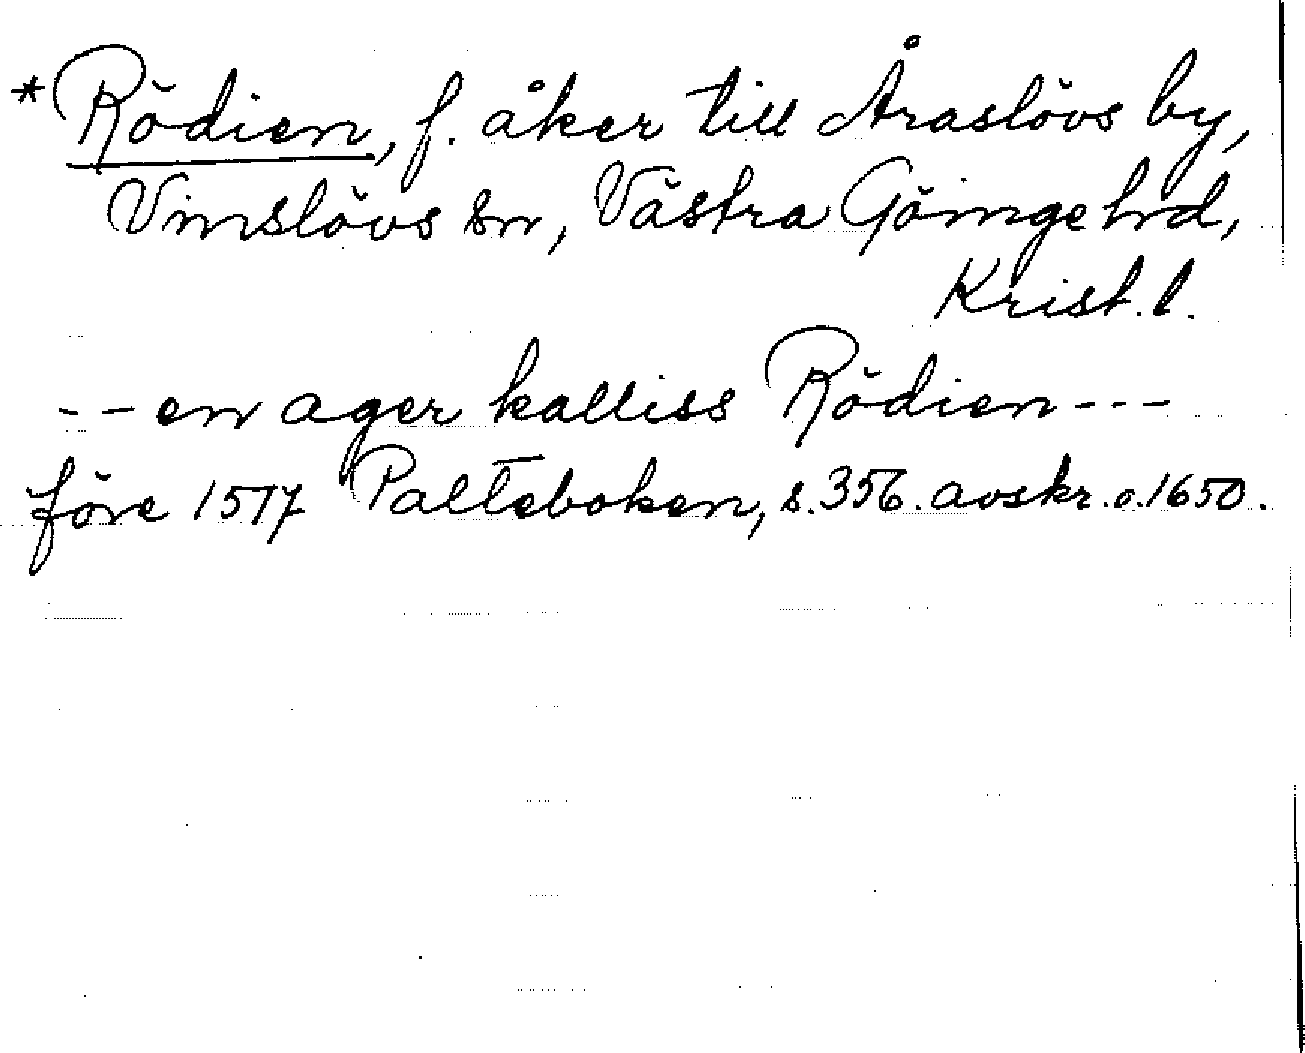 *Rödien, f. åker till Araslövs by,
Vinslövs sn, Västra Göinge hd,
Krist. l.
-- en ager kalliss Rödien ---
före 1517 Palteboken, s. 356. avskr. o. 1650.